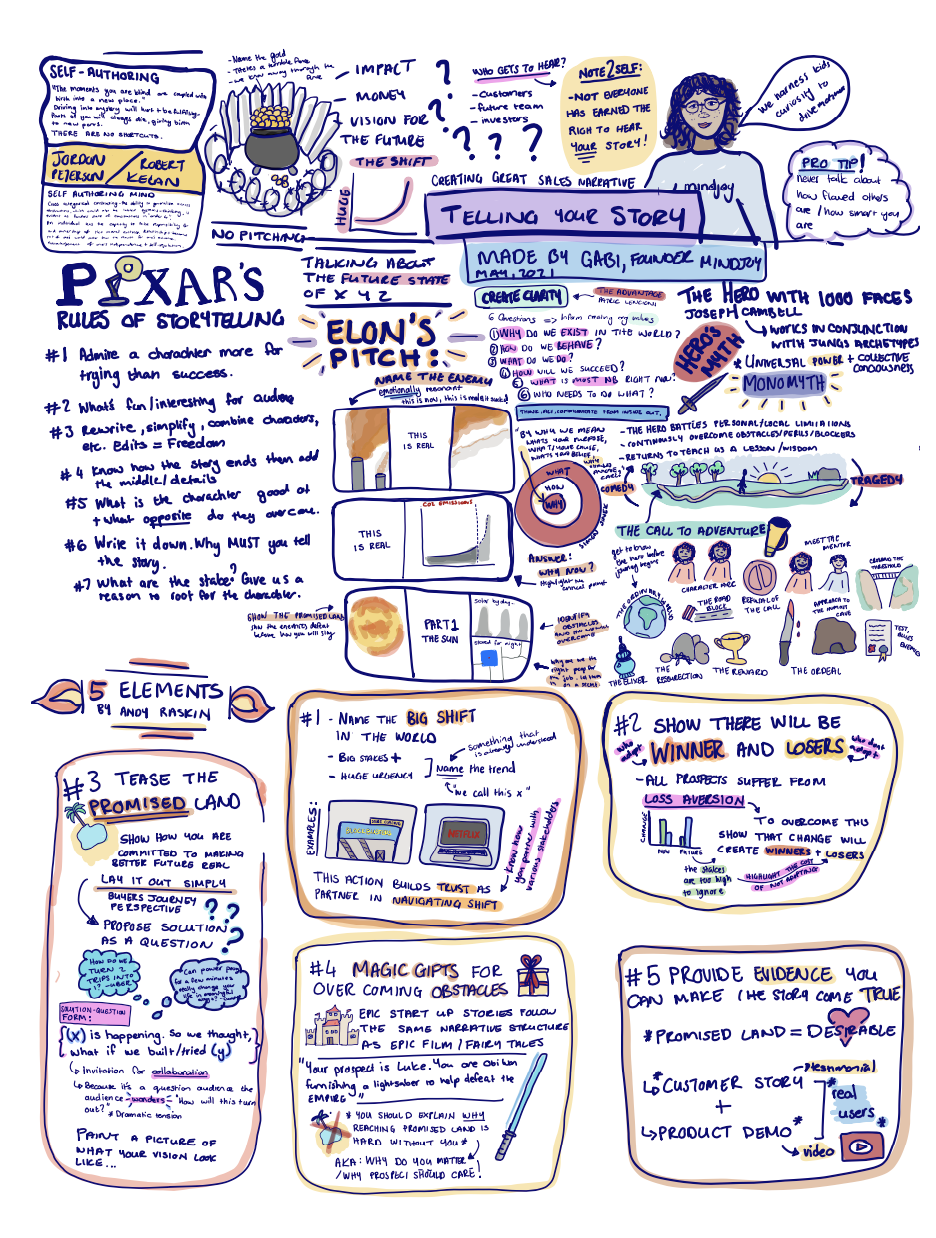 SELF-AUTHORING
"The moments you are blind are coupled with
birth into a new place."
Driving into mystery will hurt + be fulfilling.
Parts of you will always die, giving birth
to new parts.
THERE ARE NO SHORTCUTS.
JORDON PETERSON / ROBERT KEGAN
SELF AUTHORING MIND
- Name the gold
- There's a horrible fire
through the fire
NO PITCHING
- IMPACT
- MONEY
- VISION FOR THE FUTURE
?
?
? ? ?
THE SHIFT
HUGE
WHO GETS TO HEAR?
- Customers
- future team
- investors
NOTE 2 SELF:
- NOT EVERYONE
HAS EARNED THE
RIGH TO HEAR
YOUR STORY!
we harness kids
curiosity to
drive
mindjoy
PRO TIP!
never talk about
how flawed others
are / how smart you
are
CREATING GREAT SALES NARRATIVE
TELLING YOUR STORY
MADE BY GABI, FOUNDER MINDJOY
MAY, 2021
PIXAR'S
RULES OF STORYTELLING
#1 Admire a charachter more for
trying than success.
#2 What's fun/interesting for audience
#3 Rewrite, simplify, combine characters,
etc. Edits = Freedom
#4 Know how the story ends then add
the middle/details
#5 What is the charachter good at
+ what opposite do they overcome.
#6 Write it down. Why MUST you tell
the story.
#7 What are the stakes? Give us a
reason to root for the charachter.
TALKING ABOUT
THE FUTURE STATE
OF X Y Z
ELON'S
PITCH:
NAME THE ENEMY
emotionally resonant
this is now, this is
THIS
IS REAL
THIS
IS REAL
CO2 EMISSIONS
PART 1
THE SUN
solar by day.
stored for night
SHOW THE PROMISED LAND
show the enemies defeat
before how you will slay
ANSWER:
WHY NOW?
Highlight the
critical point
IDENTIFY
OBSTACLES
AND
OVERCOME
Why are we the
right
CREATE CLARITY
THE ADVANTAGE
PATRIC LENCIONI
6 Questions => Inform creating
① WHY DO WE EXIST IN THE WORLD?
② HOW DO WE BEHAVE?
③ WHAT DO WE DO?
④ HOW WILL WE SUCCEED?
⑤ WHAT IS MOST RIGHT NOW?
⑥ WHO NEEDS TO DO WHAT?
THINK, ACT, COMMUNICATE FROM INSIDE OUT.
"BY WHY WE MEAN
WHATS YOUR PURPOSE,
WHAT'S YOUR CAUSE,
WHATS YOUR BELIEF
WHAT
HOW
WHY
SIMON SINEK
THE HERO WITH 1000 FACES
JOSEPH CAMBELL
WORKS IN CONJUNCTION
WITH JUNGS ARCHETYPES
HERO'S
MYTH
* UNIVERSAL POWER + COLLECTIVE
MONOMYTH
- THE HERO BATTLES PERSONAL/LOCAL LIMITATIONS
- CONTINOUSLY OVERCOME OBSTACLES/PERILS/BLOCKERS
- RETURNS TO TEACH US A LESSON/WISDOM
COMEDY
TRAGEDY
THE CALL TO ADVENTURE
get to know
the hero before
journey begins
THE ORDINARY WORLD
CHARACTER
THE ROAD
BLOCK
REFUSAL OF
THE CALL
MEET THE
MENTOR
CROSSING THE
THRESHOLD
APPROACH TO
THE INMOST
CAVE
TEST,
ALLIES
THE ELIXER
THE
RESURECTION
THE REWARD
THE ORDEAL
5 ELEMENTS
BY ANDY RASKIN
#1 - NAME THE BIG SHIFT
IN THE WORLD
- BIG STAKES +
- HUGE URGENCY
Name the trend
something that
is already understood
"we call this x"
EXAMPLES:
NETFLIX
know how
you partner with
various stakeholders
THIS ACTION BUILDS TRUST AS
PARTNER IN NAVIGATING SHIFT
#2 SHOW THERE WILL BE
WINNER AND LOSERS
who adopt
who dont adopt
- ALL PROSPECTS SUFFER FROM
LOSS AVERSION
CHANGE
NOW FUTURE
TO OVERCOME THIS
SHOW THAT CHANGE WILL
CREATE WINNERS + LOSERS
the stakes
are too high
to ignore
HIGHLIGHT THE COST
OF NOT ADAPTING
#3 TEASE THE
PROMISED LAND
SHOW HOW YOU ARE
COMMITTED TO MAKING
BETTER FUTURE REAL
LAY IT OUT SIMPLY
BUYERS JOURNEY
PERSPECTIVE
? ? ?
PROPOSE SOLUTION
AS A QUESTION
HOW DO WE
TURN 2
TRIPS INTO
1? -UBER
SOLUTION-QUESTION
FORM:
{(x) is happening. So we thought,
what if we built/tried (y)}
Invitation for collaboration
Because it's a question audience the
audience wonders "How will this turn
out?" * Dramatic tension
PAINT A PICTURE OF
WHAT YOUR VISION LOOK
LIKE...
#4 MAGIC GIFTS FOR
OVER COMING OBSTACLES
EPIC START UP STORIES FOLLOW
THE SAME NARRATIVE STRUCTURE
AS EPIC FILM / FAIRY TALES
"Your prospect is Luke. You are Obiwan
furnishing a lightsaber to help defeat the
EMPIRE"
* YOU SHOULD EXPLAIN WHY
REACHING PROMISED LAND IS
HARD WITHOUT YOU *
AKA: WHY DO YOU MATTER
/WHY PROSPECT SHOULD CARE!
#5 PROVIDE EVIDENCE YOU
CAN MAKE THE STORY COME TRUE
* PROMISED LAND = DESIRABLE
testimonial
* CUSTOMER STORY
+
PRODUCT DEMO *
* real
users *
video